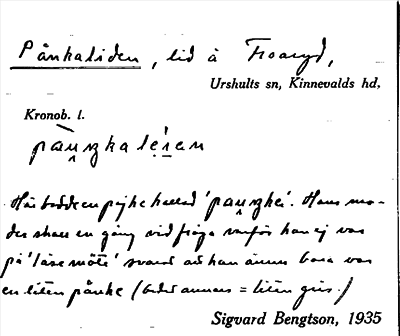 Pånkaliden, lid å Froaryd,
Urshults sn, Kinnevalds hd,
Kronob. l.
Här bodde en pojke kallad
der skall en gång vid fråga varför han ej var
på 'läse möte' svarat att han ännu bara var
en liten pånke (ordet annars = liten gris.)
Sigvard Bengtson, 1935